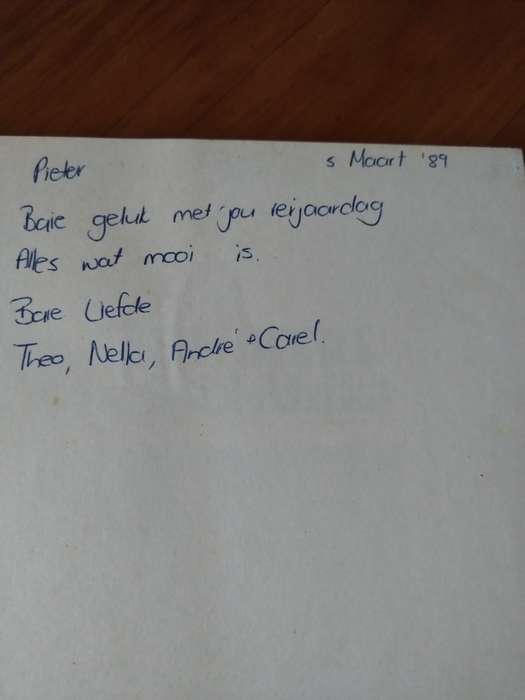 Pieter 5 Maart '89
Baie geluk met jou verjaardag
Alles wat mooi is.
Baie Liefde
Theo, Nella, André + Carel.